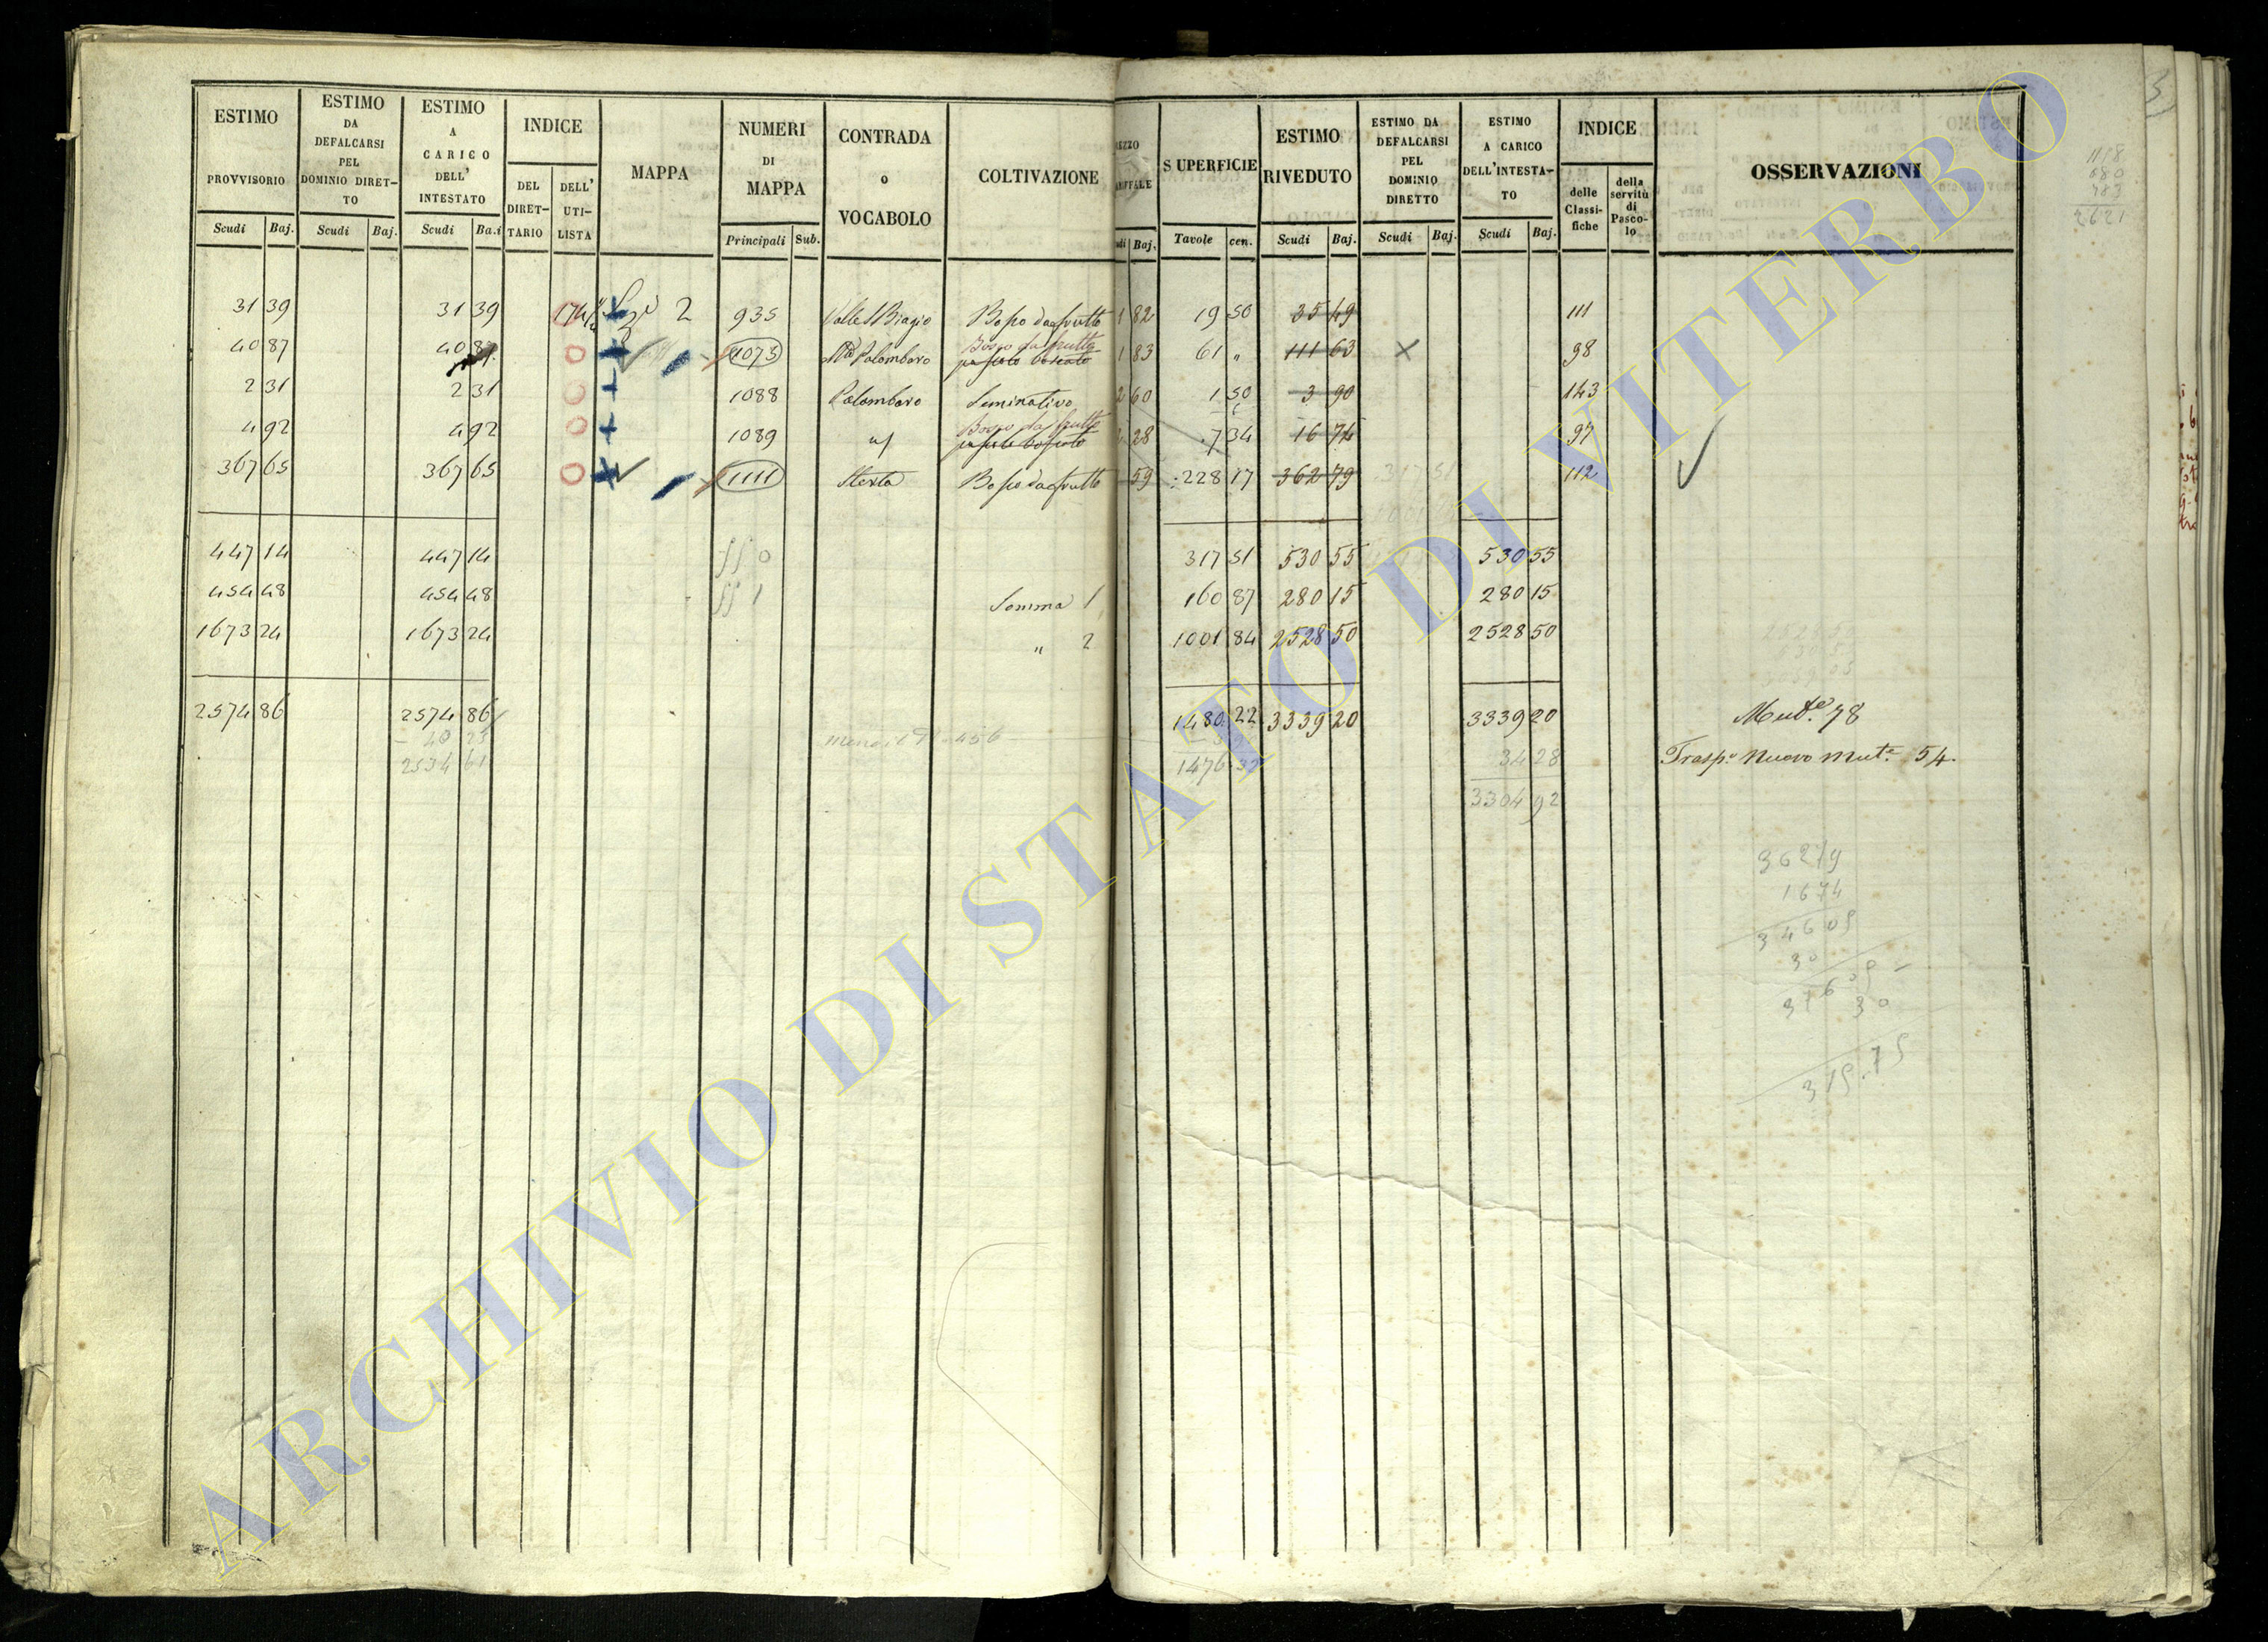 ESTIMO PROVVISORIO Scudi Baj.
ESTIMO DA DEFALCARSI PEL DOMINIO DIRET-TO Scudi Baj.
ESTIMO A CARICO DELL' INTESTATO Scudi Ba.i
INDICE DEL DIRET-TARIO DELL' UTI-LISTA
MAPPA
NUMERI DI MAPPA Principali Sub.
CONTRADA o VOCABOLO
COLTIVAZIONE
Baj.
SUPERFICIE Tavole cen.
ESTIMO RIVEDUTO Scudi Baj.
ESTIMO DA DEFALCARSI PEL DOMINIO DIRETTO Scudi Baj.
ESTIMO A CARICO DELL'INTESTA-TO Scudi Baj.
INDICE delle Classi-fiche della servitù di Pasco-lo
OSSERVAZIONI
31 39 31 39 2 935 Valle S Biagio Bosco da frutto 1 82 19 50 35 49 111
40 87 40 87 1073 Palombaro Bosco da frutto pascolo boscato 1 83 61 " 111 63 98
2 31 2 31 1088 Palombaro Seminativo 2 60 1 50 3 90 143
4 92 4 92 1089 Bosco da frutto pascolo boscato 28 7 34 16 74 97
367 65 367 65 1111 Sterta Bosco da frutto 59 228 17 362 79 112
447 14 447 14 317 51 530 55 530 55
454 48 454 48 Somma 1 160 87 280 15 280 15
1673 24 1673 24 " 2 1001 84 2528 50 2528 50
2574 86 2574 86 1480 22 3339 20 3339 20 Mut.e 78
40 25
2534 61 1476 32 34 28 Trasp.o Nuovo Mut.e 54.
3304 92
36279
1674
34605
30
37605
30
315.75
1118
680
783
2621
ARCHIVIO DI STATO DI VITERBO